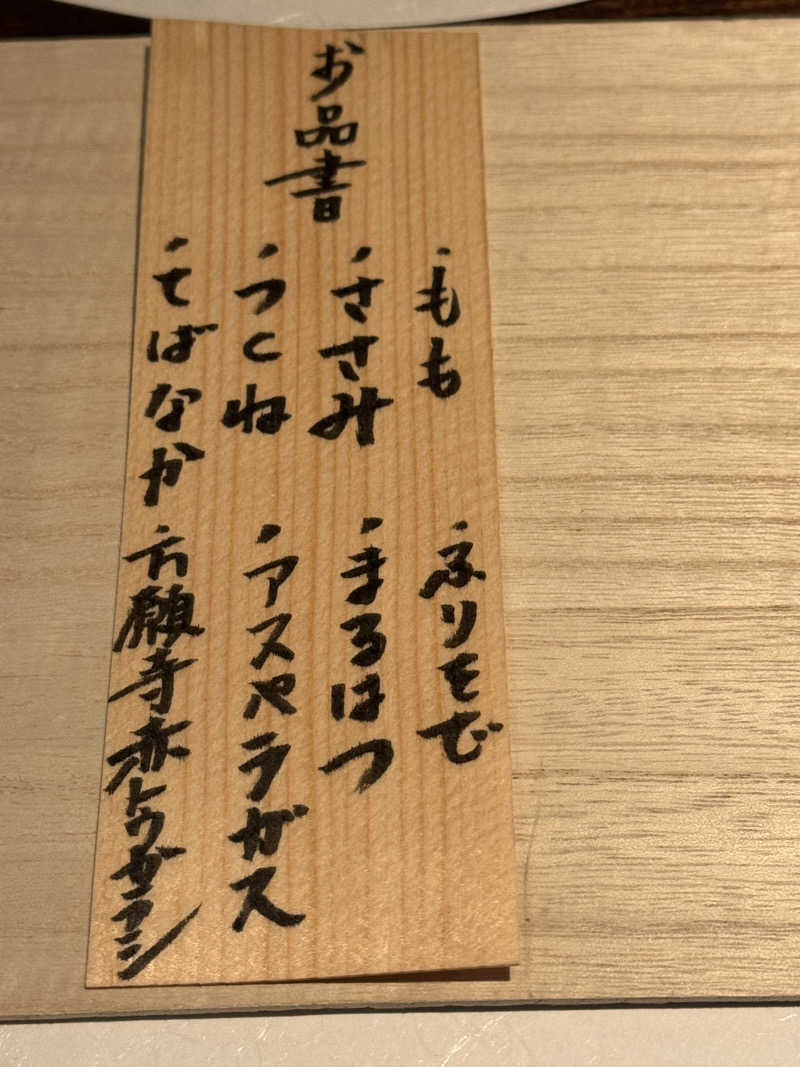 お品書
・もも
・ふりそで
・ささみ
・まるはつ
・つくね
・アスパラガス
・てばなか
・万願寺赤トウガラシ